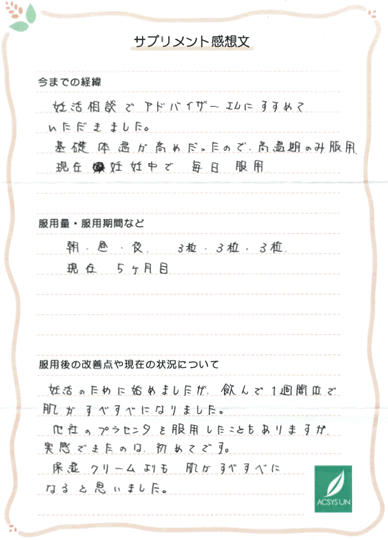 サプリメント感想文
今までの経緯
妊活相談でアドバイザーさんにすすめて
いただきました。
基礎体温が高めだったので、高温期のみ服用
現在 妊娠中で 毎日 服用
服用量・服用期間など
朝・昼・夜、 3粒・3粒・3粒
現在 5ヶ月目
服用後の改善点や現在の状況について
妊活のために始めましたが、飲んで1週間位で
肌がすべすべになりました。
他社のプラセンタを服用したこともありますが、
実感できたのは、初めてです。
保湿クリームよりも 肌がすべすべに
なると思いました。
ACSYS UN